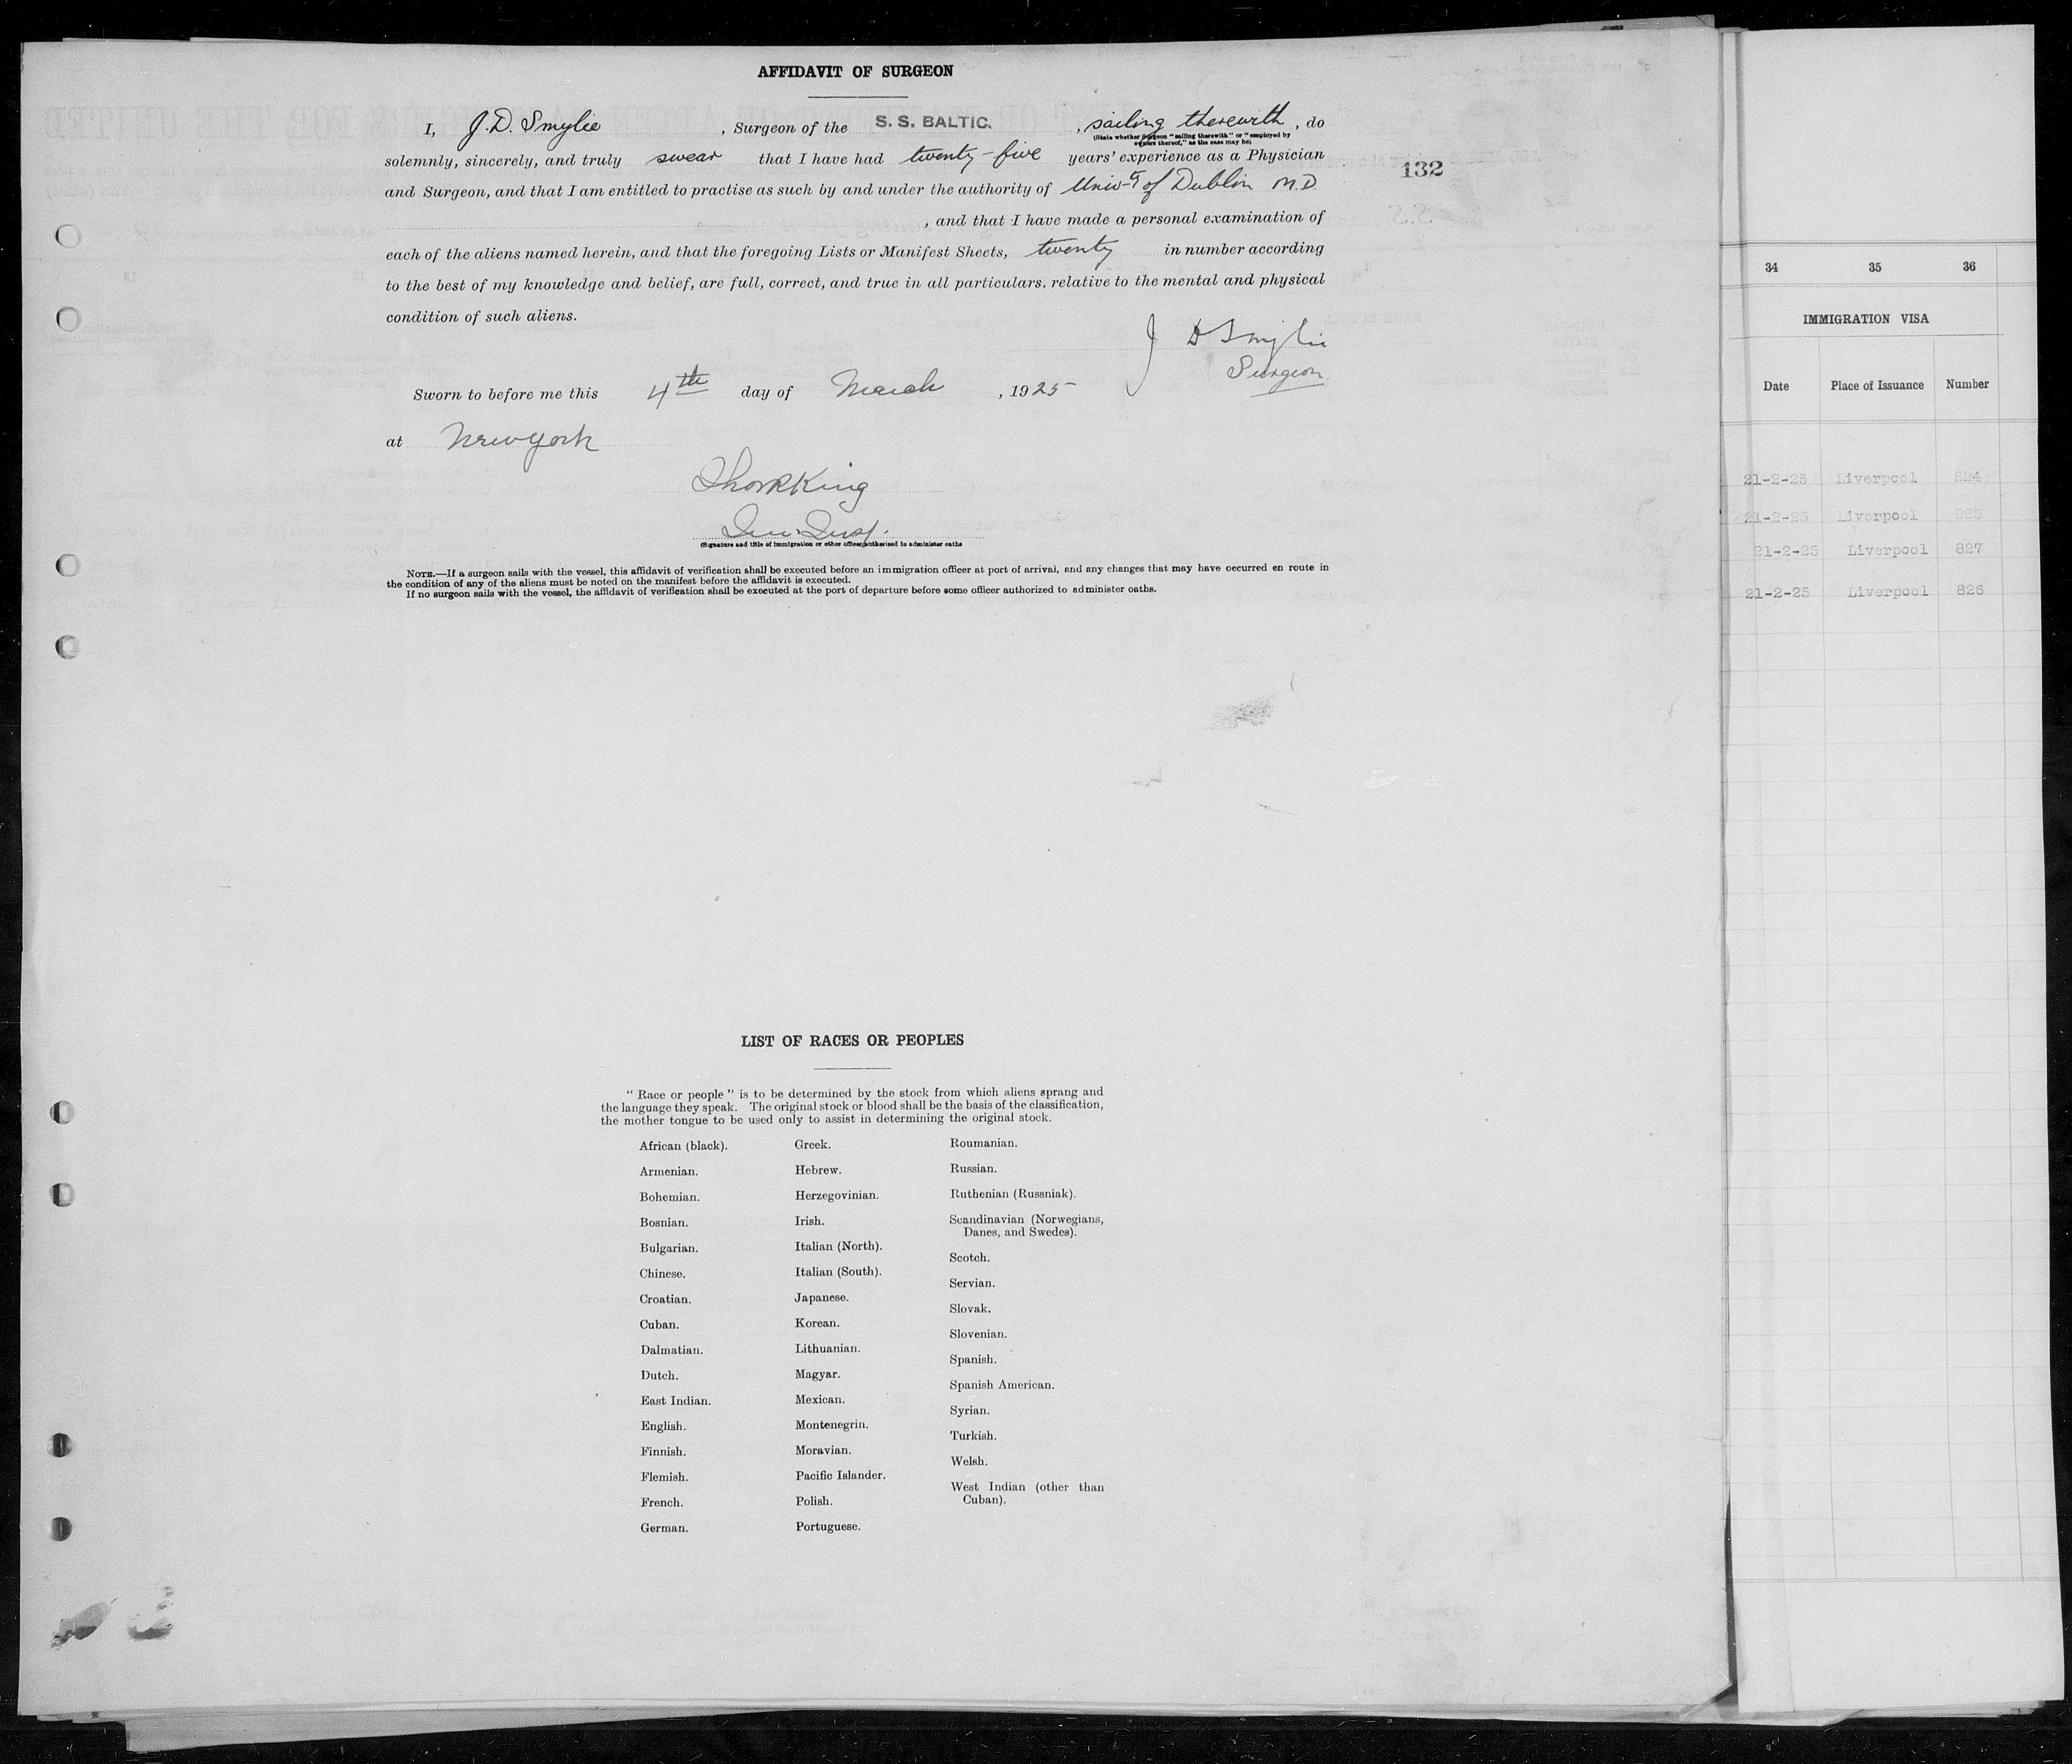 AFFIDAVIT OF SURGEON
I, J. D. Smylie, Surgeon of the S. S. BALTIC., sailing therewith, do
(State whether Surgeon "sailing therewith" or "employed by
owners thereof," as the case may be)
solemnly, sincerely, and truly swear that I have had twenty-five years' experience as a Physician
and Surgeon, and that I am entitled to practise as such by and under the authority of Univ-ty of Dublin M.D.
, and that I have made a personal examination of
each of the aliens named herein, and that the foregoing Lists or Manifest Sheets, twenty in number according
to the best of my knowledge and belief, are full, correct, and true in all particulars. relative to the mental and physical
condition of such aliens.
J D Smylie
Surgeon
Sworn to before me this 4th day of March, 1925
at New York
King
(Signature and title of immigration or other officer authorised to administer oaths
NOTE.—If a surgeon sails with the vessel, this affidavit of verification shall be executed before an immigration officer at port of arrival, and any changes that may have occurred en route in
the condition of any of the aliens must be noted on the manifest before the affidavit is executed.
If no surgeon sails with the vessel, the affidavit of verification shall be executed at the port of departure before some officer authorized to administer oaths.
132
LIST OF RACES OR PEOPLES
" Race or people " is to be determined by the stock from which aliens sprang and
the language they speak. The original stock or blood shall be the basis of the classification,
the mother tongue to be used only to assist in determining the original stock.
African (black).
Armenian.
Bohemian.
Bosnian.
Bulgarian.
Chinese.
Croatian.
Cuban.
Dalmatian.
Dutch.
East Indian.
English.
Finnish.
Flemish.
French.
German.
Greek.
Hebrew.
Herzegovinian.
Irish.
Italian (North).
Italian (South).
Japanese.
Korean.
Lithuanian.
Magyar.
Mexican.
Montenegrin.
Moravian.
Pacific Islander.
Polish.
Portuguese.
Roumanian.
Russian.
Ruthenian (Russniak).
Scandinavian (Norwegians,
Danes, and Swedes).
Scotch.
Servian.
Slovak.
Slovenian.
Spanish.
Spanish American.
Syrian.
Turkish.
Welsh.
West Indian (other than
Cuban).
34 35 36
IMMIGRATION VISA
Date Place of Issuance Number
21-2-25 Liverpool 824
21-2-25 Liverpool 825
21-2-25 Liverpool 827
21-2-25 Liverpool 826